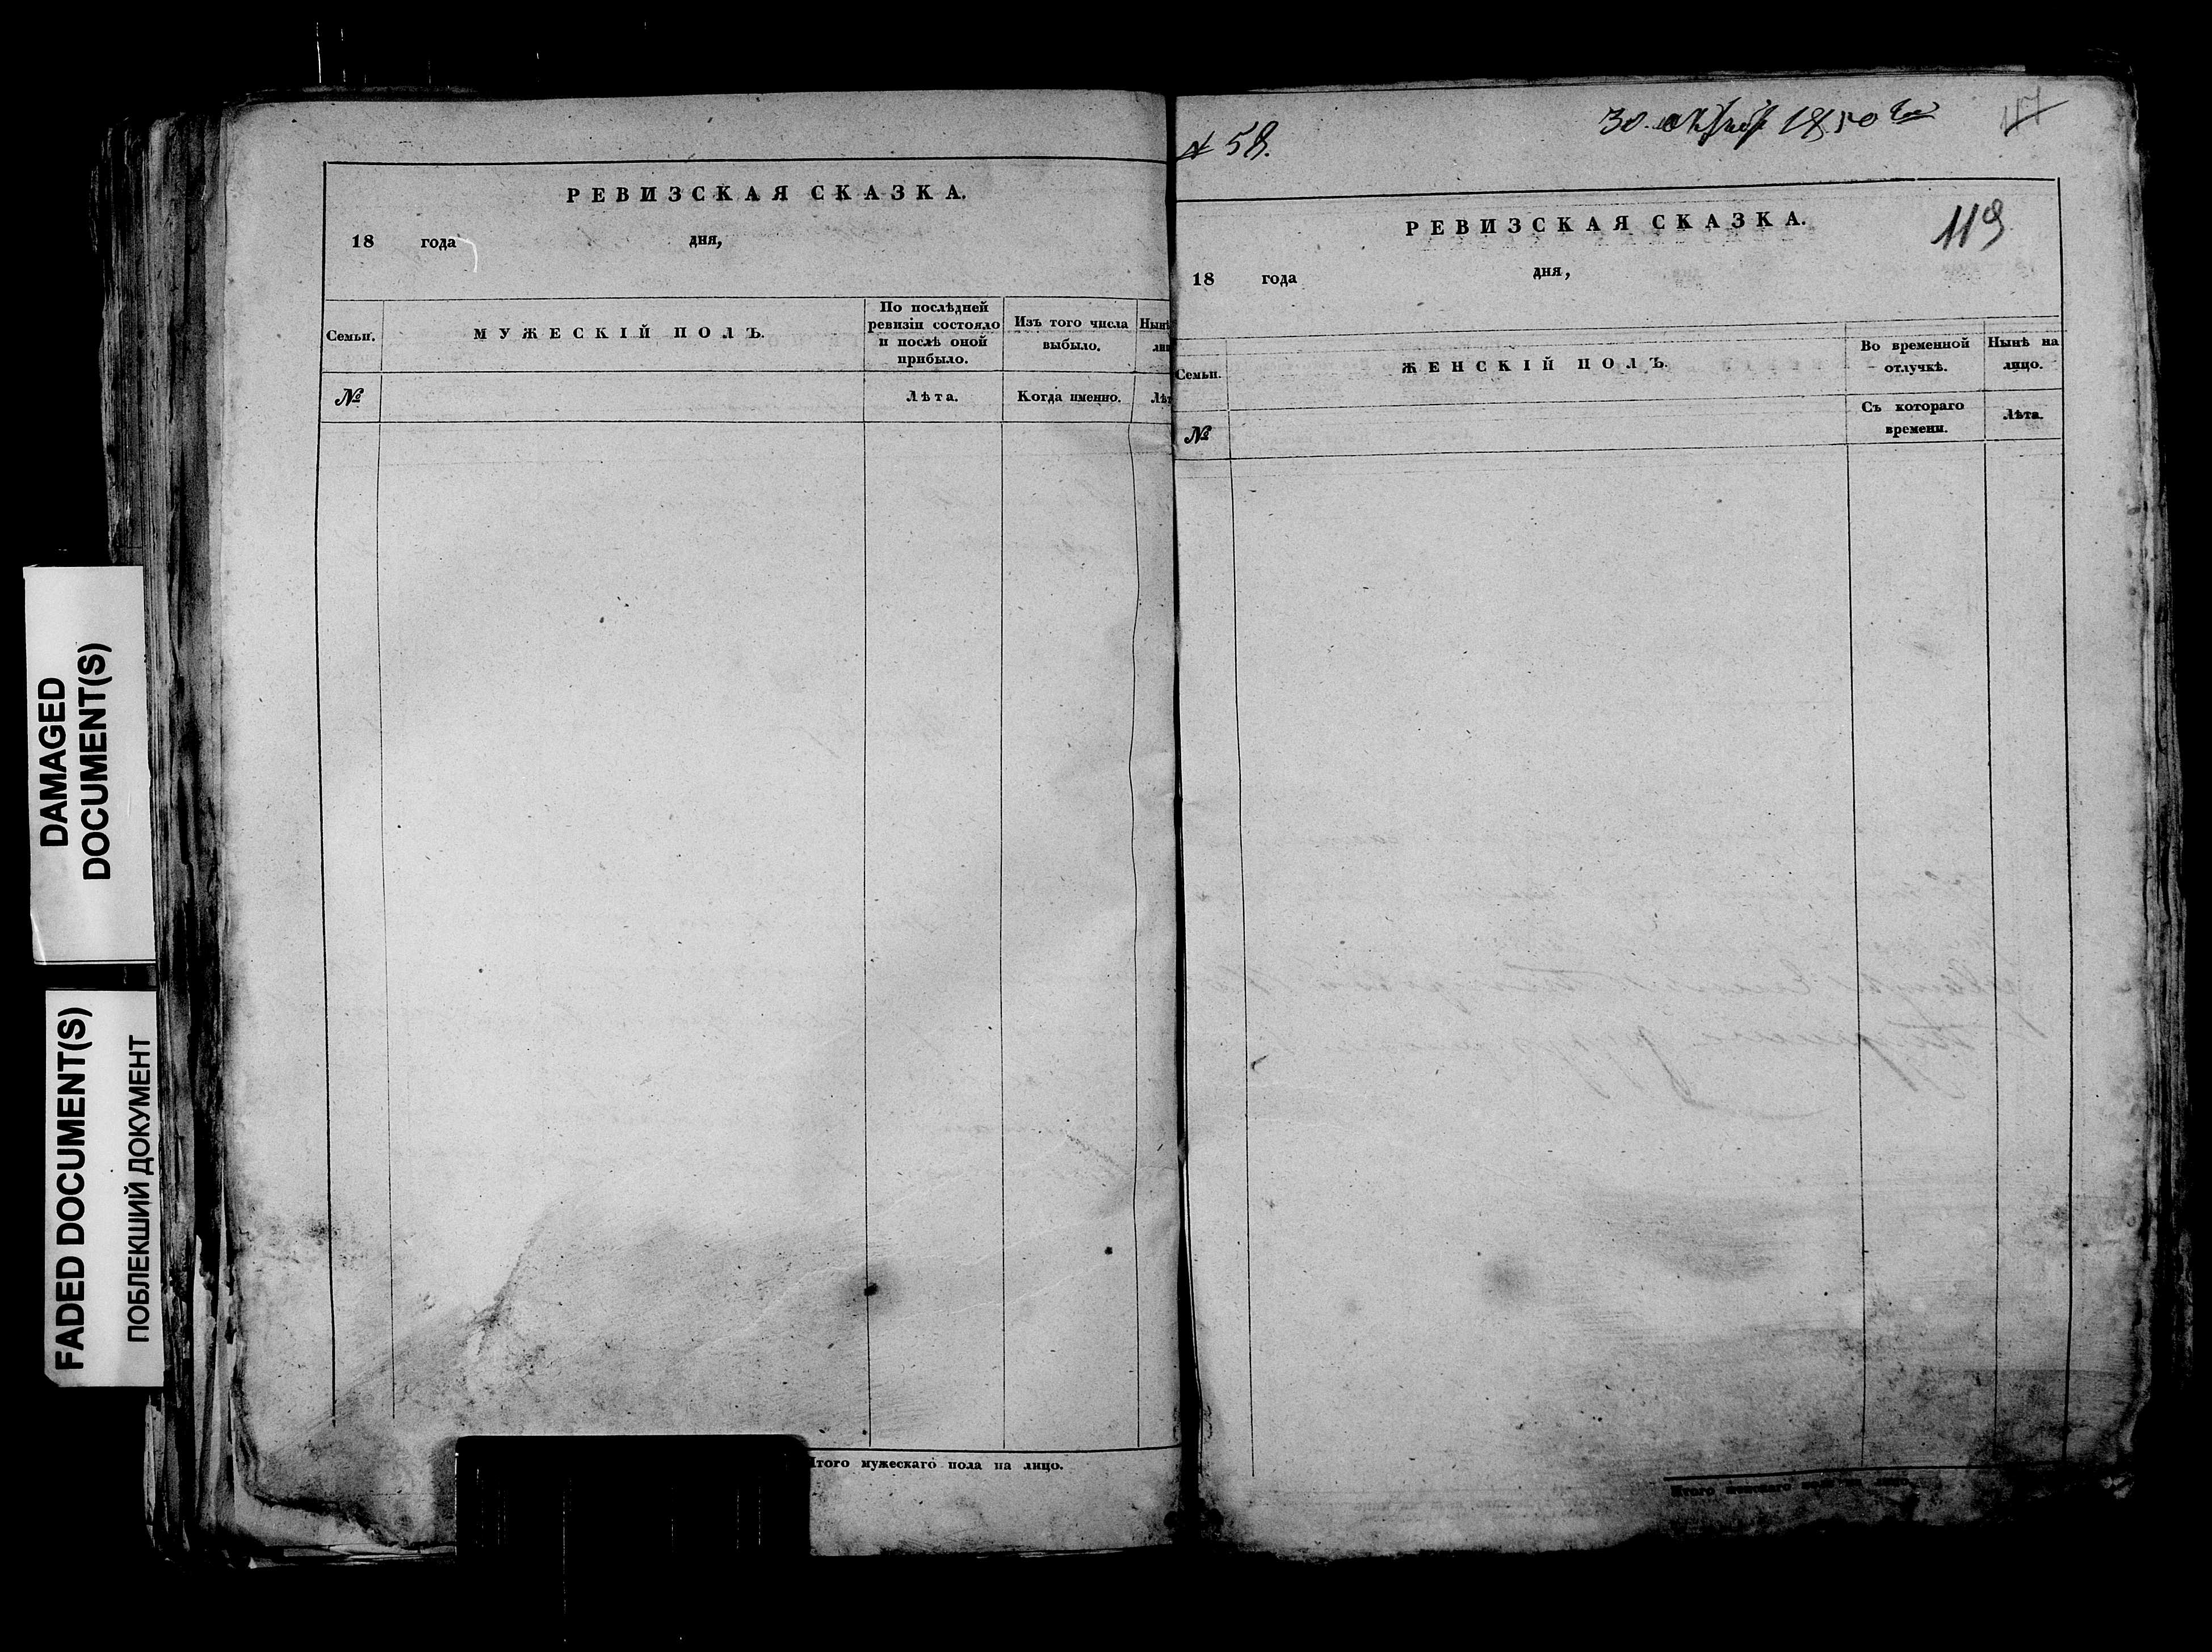 DAMAGED
DOCUMENT(S)
FADED DOCUMENT(S)
ПОБЛЕКШИЙ ДОКУМЕНТ
РЕВИЗСКАЯ СКАЗКА.
18 года дня,
Семьи.
МУЖЕСКІЙ ПОЛЪ.
По послѣдней
ревизіи состояло
и послѣ оной
прибыло.
Изъ того числа
выбыло.
№
Лѣта.
Когда именно.
того мужескаго пола на лицо.
№ 58.
30 октября 1850 года
117
119
РЕВИЗСКАЯ СКАЗКА.
18 года дня,
Семьи.
ЖЕНСКІЙ ПОЛЪ.
Во временной
отлучкѣ.
Нынѣ на
лицо.
№
Съ котораго
времени.
Лѣта.
Итого женскаго пола на лицо.